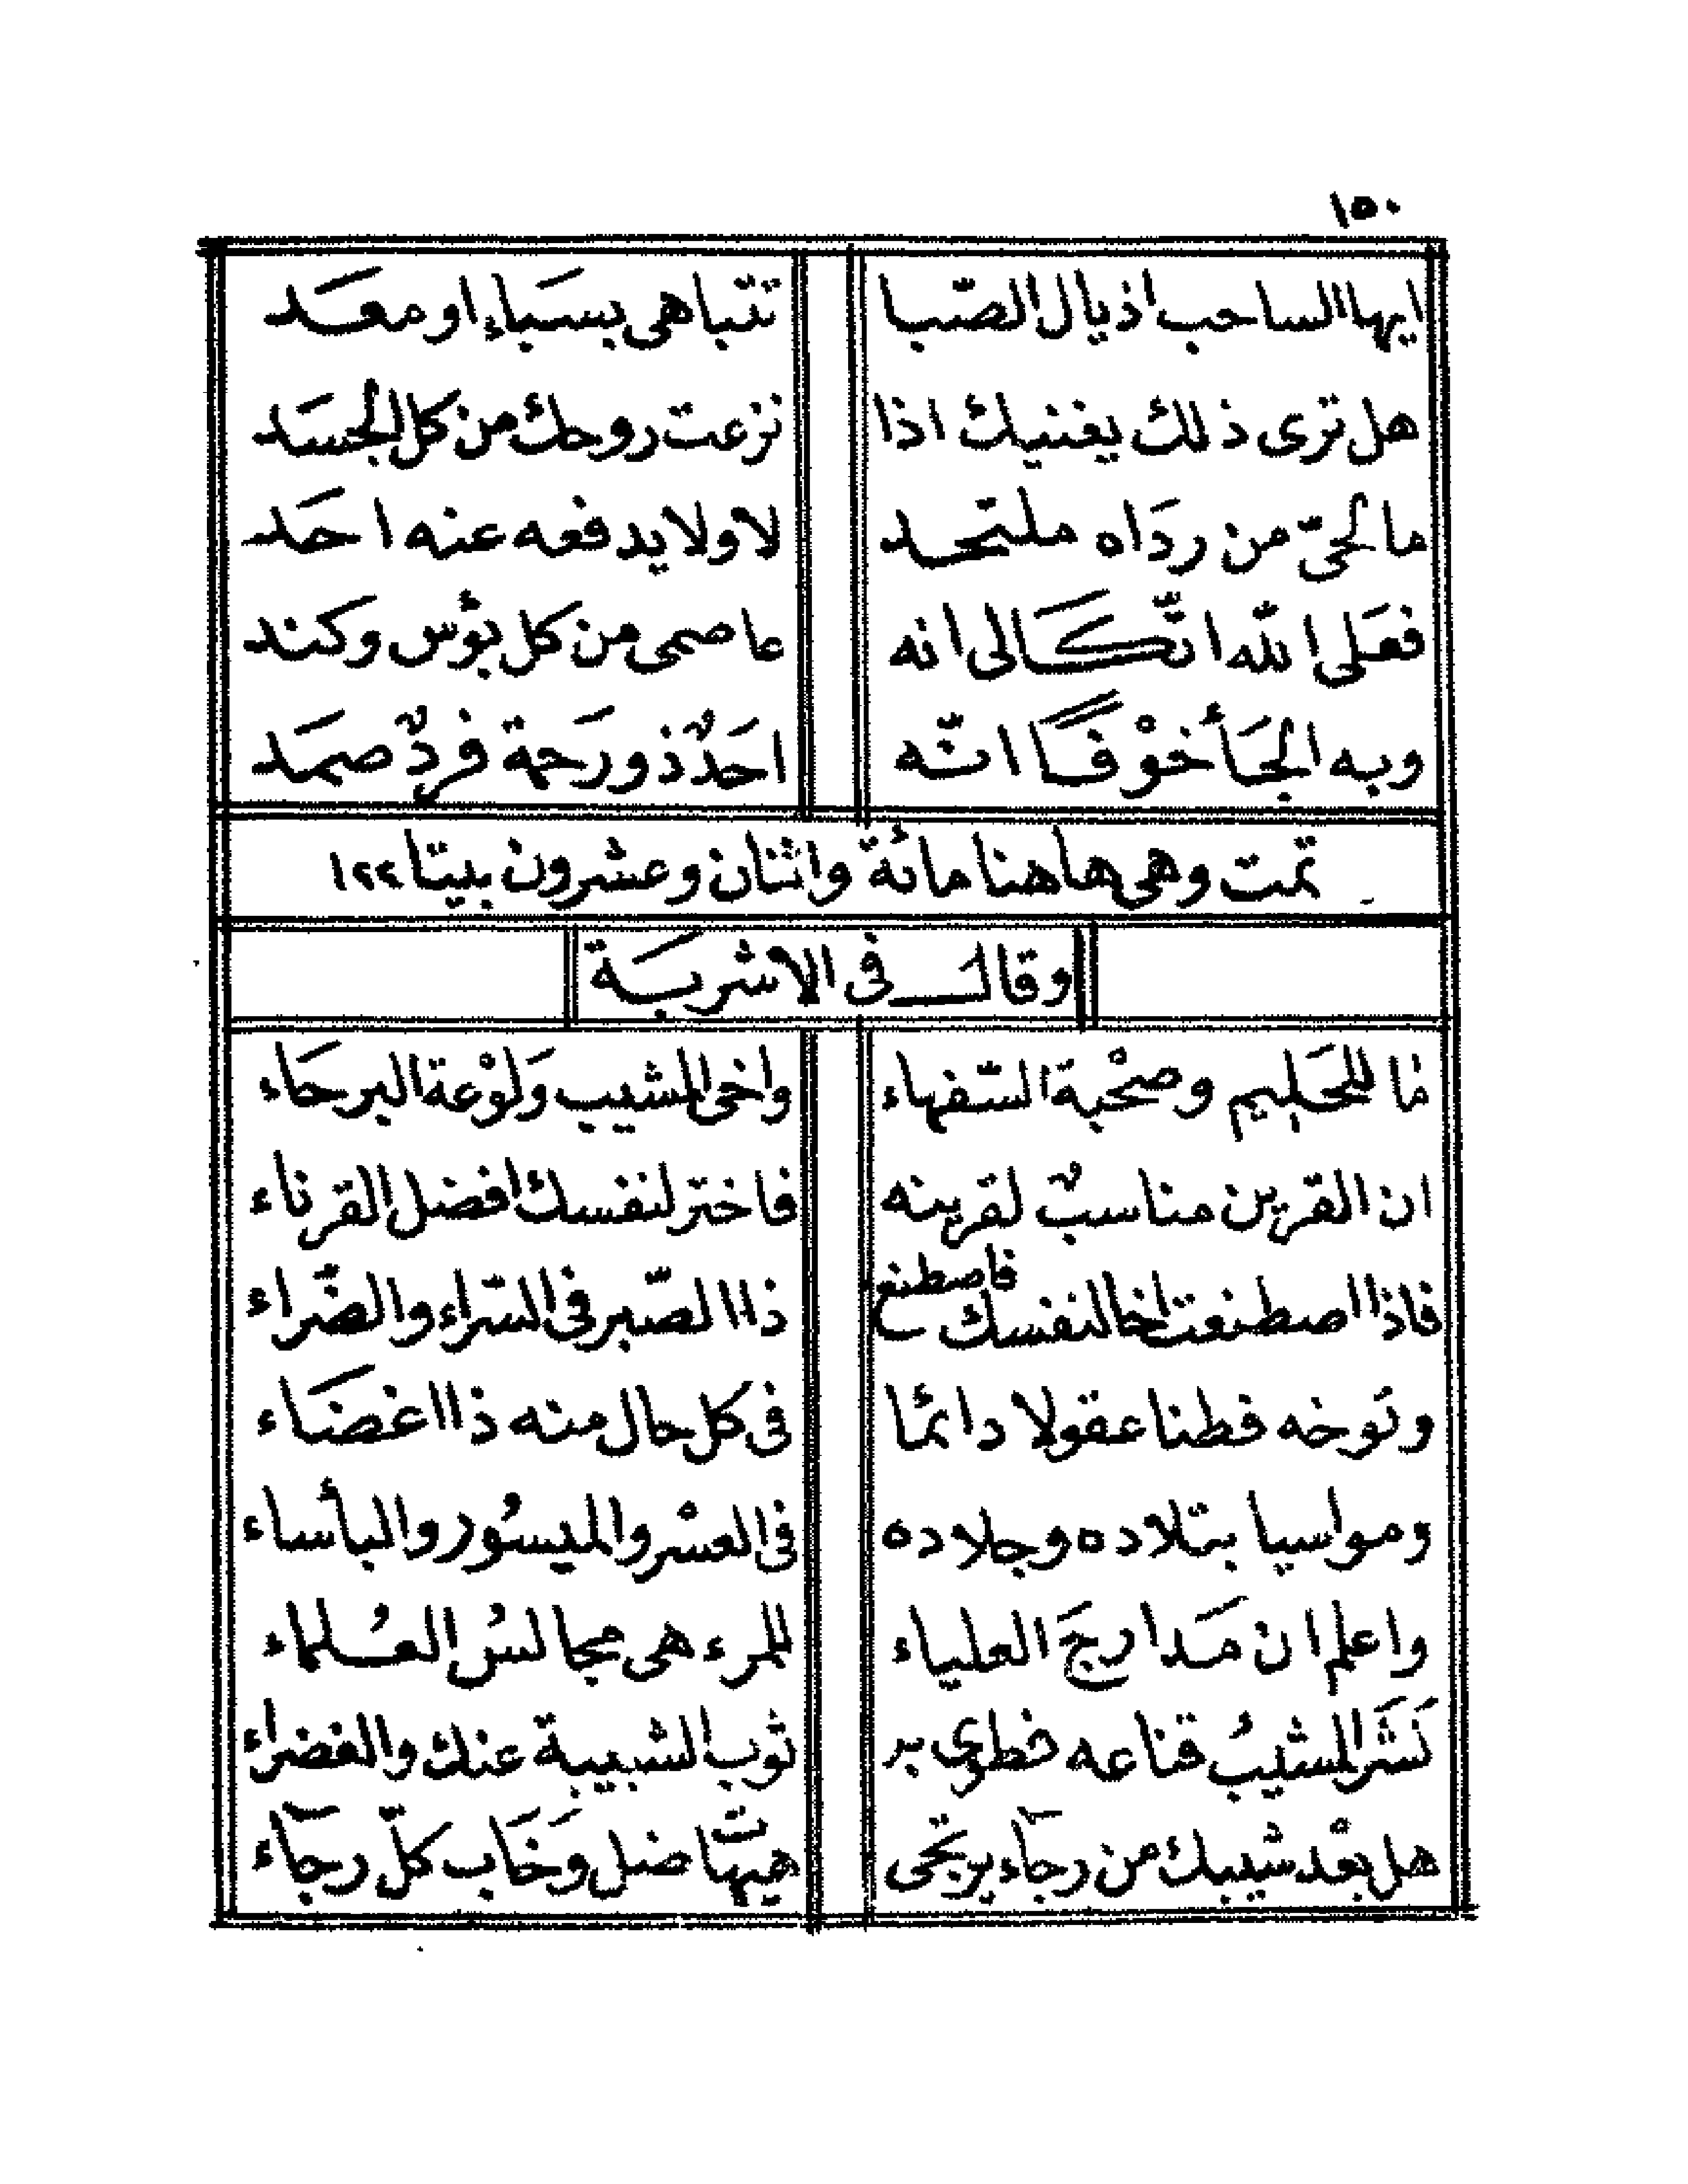 ١٥٠
ايها الساحب اذيال الصّبا تتباهى بسَباءٍ او معَد
هل ترى ذلك يغنيك اذا نزعت روحك من كل الجسَد
ما لحىّ من ردَاه ملتحد لا ولا يدفعه عنه احَد
فعَلى الله اتّكَالى انه عاصمى من كل بؤس وكند
وبه الجَأ خوْفًا انّه احَدٌ ذو رَحمة فردٌ صمَد
تمت وهى هاهنا مائة واثنان وعشرون بيتا ١٢٢
وقال فى الاشربَة
ما للحَليم وصحْبة السّفهاء واخى المشيب وَلوْعة البرحَاء
ان القرين مناسبٌ لقرينه فاختر لنفسك افضل القرناء
فاذا اصطنعت اخا لنفسك فاصطنع ذا الصّبر فى السّراء والضّراء
وتوخه فطنا عقولا دائما فى كل حال منه ذا اغضَاء
ومواسيا بتلاده وجلاده فى العسْر والميسُور والبأساء
واعلم ان مَدارجَ العلياء للمرء هى مجالسُ العُلماء
نَشَر المشيبُ قناعه فطوي به ثوب الشبيبة عنك والغضراء
هل بعْد شيبك من رجآء يرتجى هيهات ضل وخَاب كلّ رجآء